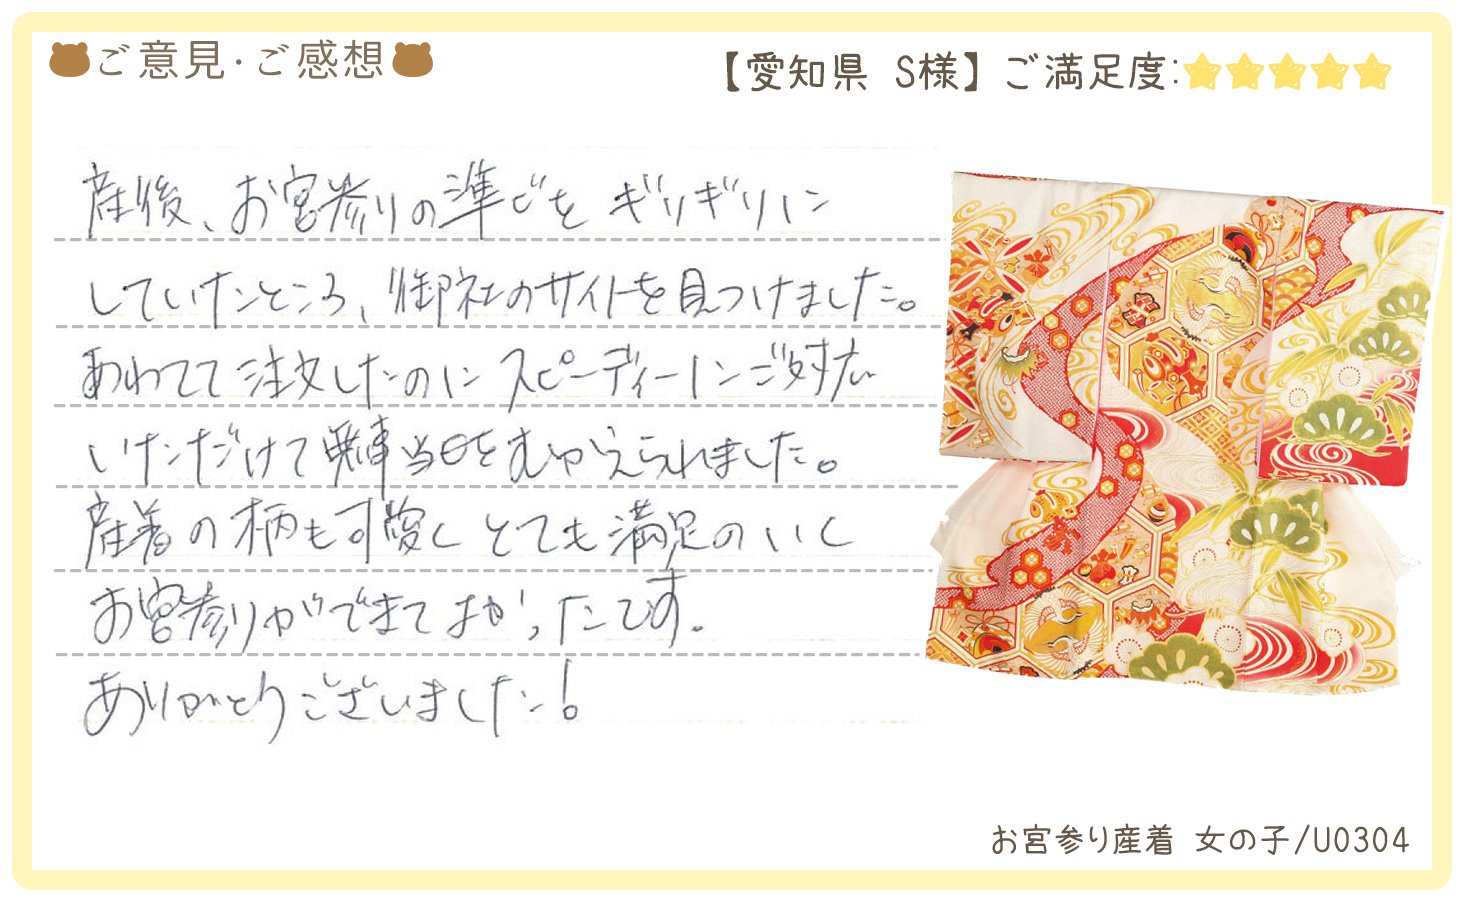 ご意見・ご感想
【愛知県 S様】ご満足度:
産後、お宮参りの準びを ギリギリに
していたところ、御社のサイトを見つけました。
あわてて注文したのに スピーディーにご対応
いただけて無事当日をむかえられました。
産着の柄も可愛くとても満足のいく
お宮参りができてよかったです。
ありがとうございました!
お宮参り産着 女の子/U0304